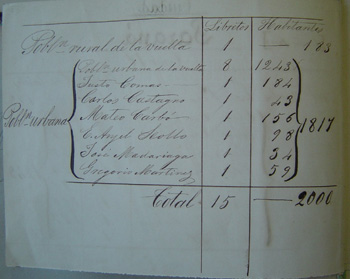 Libretos Habitantes
Pobl.n rural de la vuelta 1 — 183
Pobl.n urbana de la vuelta 8 1243
Justo Comas 1 184
Carlos Castagno 1 43
Pobl.n urbana Mateo 1 156 1817
C. Angel 1 98
José Madariaga 1 34
Gregorio Martinez 1 59
Total 15 — 2000